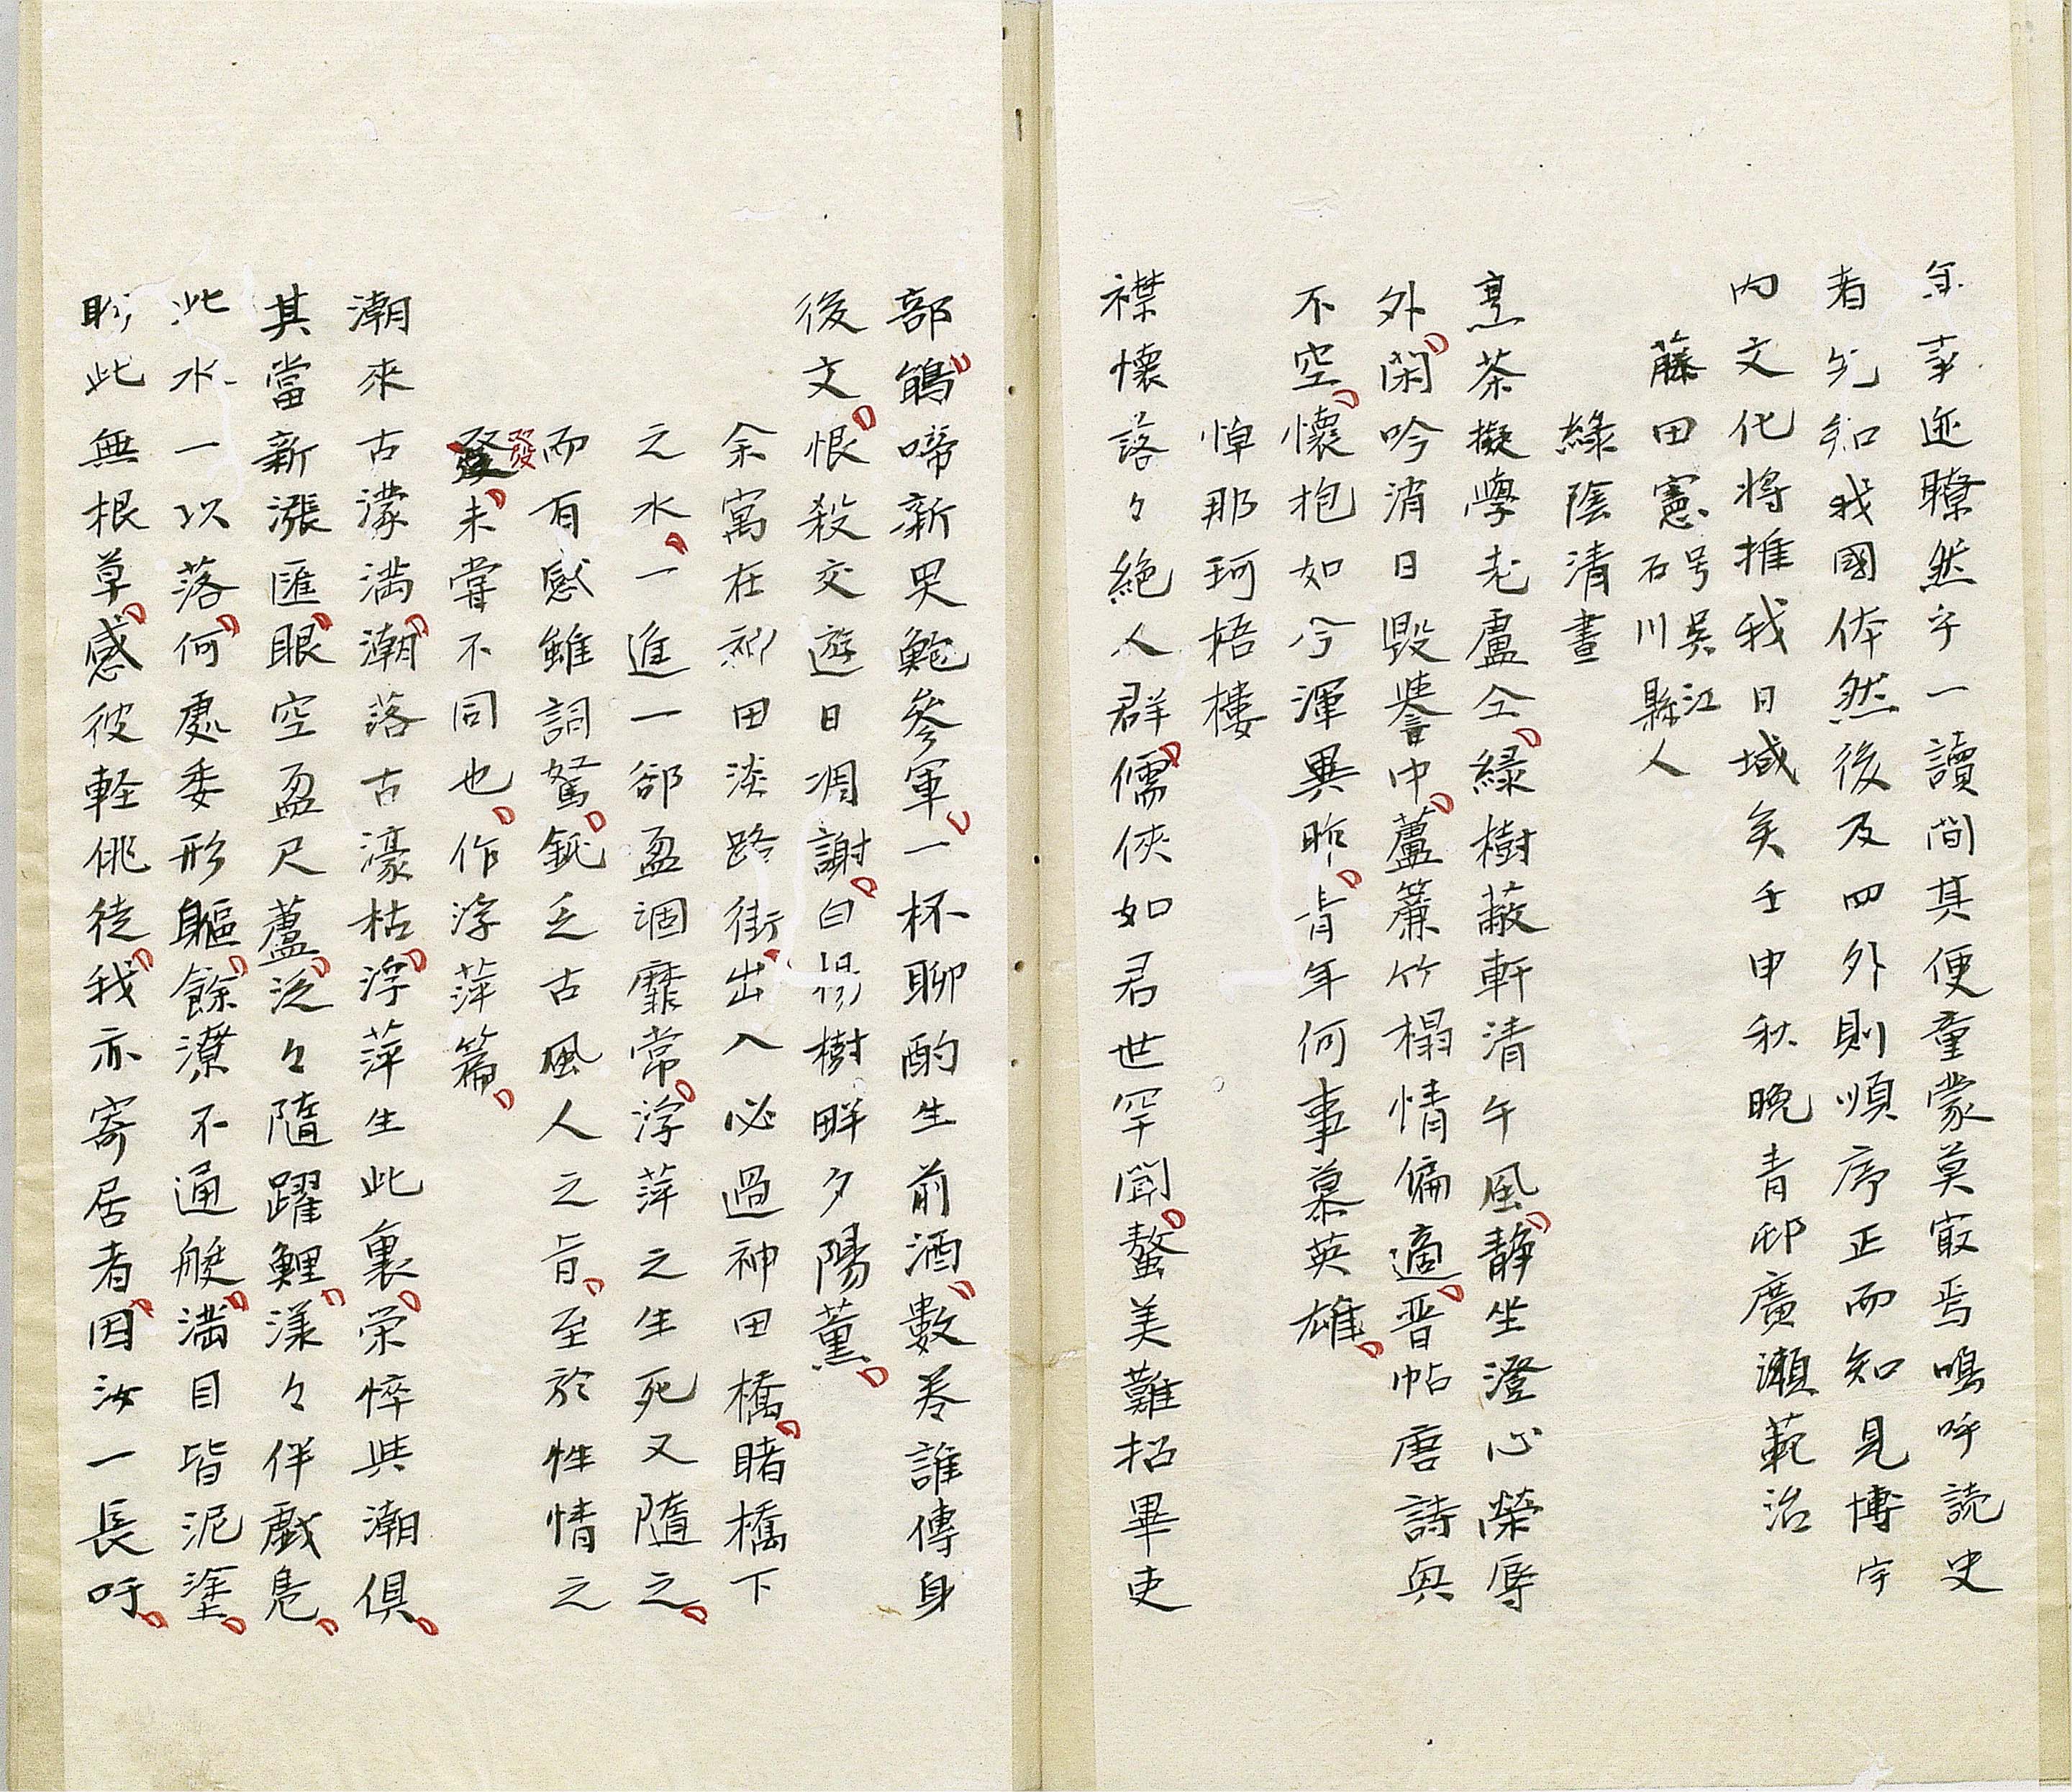 年事迹瞭然乎一讀間其便童蒙莫㝡焉嗚呼読史
者先知我國体然後及四外則順序正而知見博宇
内文化将推我日域矣壬申秋晩青邨廣瀬範治
藤田憲号呉江石川縣人
綠陰清晝
烹茶擬學老盧仝緑樹蔽軒清午風静坐澄心榮辱
外閑吟消日毀譽中蘆簾竹榻情偏適晋帖唐詩興
不空懷抱如今渾異昨肯年何事慕英雄
悼那珂梧樓
襟懷落々絶人群儒俠如君世罕聞螯美難招畢吏
部鵑啼新哭鮑參軍一杯聊酌生前酒數卷誰傳身
後文恨殺交遊日凋謝白楊樹畔夕陽薰
余寓在神田淡路街出入必過神田橋睹橋下
之水一進一郤盈涸靡常浮萍之生死又隨之
而有感雖詞駑鈍乏古風人之旨至於性情之
發未嘗不同也作浮萍篇
潮來古濠満潮落古濠枯浮萍生此裏栄悴與潮俱
其當新漲匯眼空盈尺蘆泛々隨躍鯉漾々伴戲鳧
此水一以落何處委形軀餘潦不通艇満目皆泥塗
盻此無根草感彼軽佻徒我亦寄居者因汝一長呼